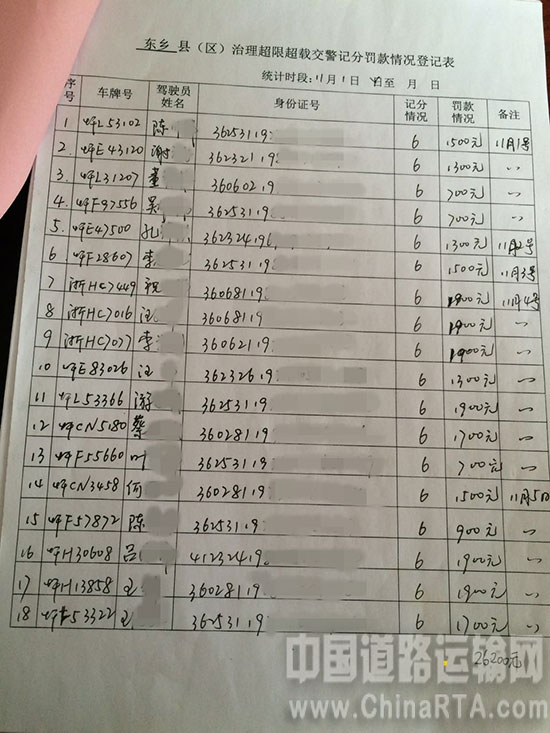 东乡 县（区）治理超限超载交警记分罚款情况登记表
统计时段：11月1日至 月 日
序号 车牌号 驾驶员姓名 身份证号 记分情况 罚款情况 备注
1 赣L53102 陈 36253119 6 1500元 11月1号
2 赣E43120 谢 36232119 6 1300元 〃
3 赣L31207 董 36060219 6 700元 〃
4. 赣F97556 吴 36253119 6 700元 〃
5. 赣E47500 孔 362324196 6 1300元 11月2号
6 赣F28607 李 36253119 6 1500元 11月3号
7 浙HC7449 祝 36068119 6 1900元 11月4号
8 浙HC7016 汪 36068119 6 1900元 〃
9 浙HC7077 李 36062119 6 1900元 〃
10 赣E83026 汪 36232619 6 1300元 〃
11 赣L53366 游 36253119 6 1900元 〃
12 赣CN5180 蔡 36028119 6 1700元 〃
13 赣F55660 叶 36253119 6 700元 〃
14 赣CN3458 何 36028119 6 1500元 11月5日
15 赣F57872 陈 36253119 6 900元 〃
16 赣H30608 吕 41232419 6 1900元 〃
17 赣H13858 王 36028119 6 1900元 〃
18 53322 王 36253119 6 1700元 〃
26200元
中国道路运输网
www.ChinaRTA.com